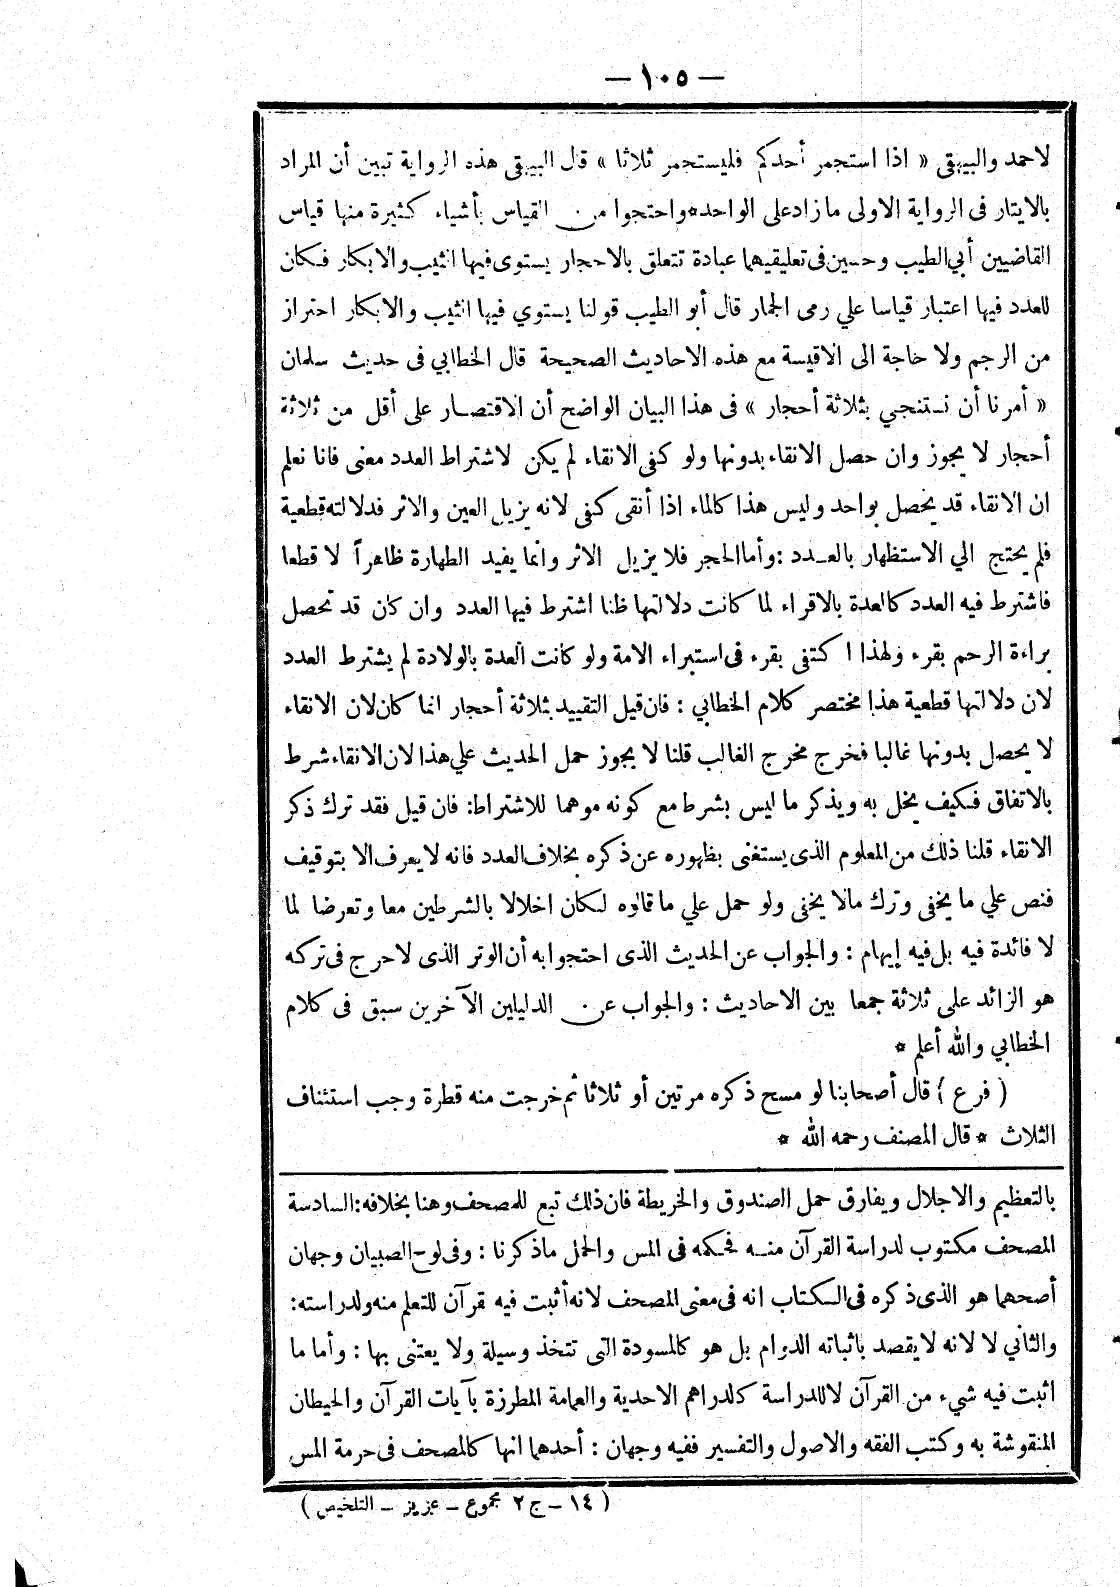 — ١٠٥ —
لاحمد والبيهقى « اذا استجمر أحدكم فليستجمر ثلاثا » قال البيهقى هذه الرواية تبين أن المراد
بالايتار فى الرواية الاولى مازاد على الواحد * واحتجوا من القياس بأشياء كثيرة منها قياس
القاضيين أبي الطيب وحسين فى تعليقيهما عبادة تتعلق بالاحجار يستوى فيها الثيب والابكار فكان
للعدد فيها اعتبار قياسا علي رمى الجمار قال أبو الطيب قولنا يستوي فيها الثيب والابكار احتراز
من الرجم ولا حاجة الى الاقيسة مع هذه الاحاديث الصحيحة قال الخطابي فى حديث سلمان
« أمرنا أن نستنجي بثلاثة أحجار » فى هذا البيان الواضح أن الاقتصار على أقل من ثلاثة
أحجار لا يجوز وان حصل الانقاء بدونها ولو كفى الانقاء لم يكن لاشتراط العدد معنى فانا نعلم
ان الانقاء قد يحصل بواحد وليس هذا كالماء اذا أنقى كفى لانه يزيل العين والاثر فدلالته قطعية
فلم يحتج الي الاستظهار بالعدد : وأما الحجر فلا يزيل الاثر وانما يفيد الطهارة ظاهراً لا قطعا
فاشترط فيه العدد كالعدة بالاقراء لما كانت دلالتها ظنا اشترط فيها العدد وان كان قد تحصل
براءة الرحم بقرء ولهذا اكتفى بقرء فى استبراء الامة ولو كانت العدة بالولادة لم يشترط العدد
لان دلالتها قطعية هذا مختصر كلام الخطابي : فان قيل التقييد بثلاثة أحجار انما كان لان الانقاء
لا يحصل بدونها غالبا فخرج مخرج الغالب قلنا لا يجوز حمل الحديث علي هذا لان الانقاء شرط
بالاتفاق فكيف يخل به ويذكر ما ليس بشرط مع كونه موهما للاشتراط: فان قيل فقد ترك ذكر
الانقاء قلنا ذلك من المعلوم الذى يستغنى بظهوره عن ذكره بخلاف العدد فانه لا يعرف الا بتوقيف
فنص علي ما يخفى وترك مالا يخفى ولو حمل علي ما قالوه لكان اخلالا بالشرطين معا وتعرضا لما
لا فائدة فيه بل فيه إيهام : والجواب عن الحديث الذى احتجوا به أن الوتر الذى لاحرج فى تركه
هو الزائد على ثلاثة جمعا بين الاحاديث : والجواب عن الدليلين الآخرين سبق فى كلام
الخطابي والله أعلم *
( فرع ) قال أصحابنا لو مسح ذكره مرتين أو ثلاثا ثم خرجت منه قطرة وجب استئناف
الثلاث * قال المصنف رحمه الله *
بالتعظيم والاجلال ويفارق حمل الصندوق والخريطة فان ذلك تبع للمصحف وهنا بخلافه: السادسة
المصحف مكتوب لدراسة القرآن منه فحكمه فى المس والحمل ماذكرنا : وفى لوح الصبيان وجهان
أصحهما هو الذى ذكره فى الكتاب انه فى معنى المصحف لانه أثبت فيه قرآن للتعلم منه ولدراسته:
والثاني لا لانه لا يقصد باثباته الدوام بل هو كالمسودة التى تتخذ وسيلة ولا يعتنى بها : وأما ما
اثبت فيه شيء من القرآن لا للدراسة كالدراهم الاحدية والعمامة المطرزة بآيات القرآن والحيطان
المنقوشة به وكتب الفقه والاصول والتفسير ففيه وجهان : أحدهما انها كالمصحف فى حرمة المس
( ١٤ – ج ٢ مجموع – عزيز – التلخيص )